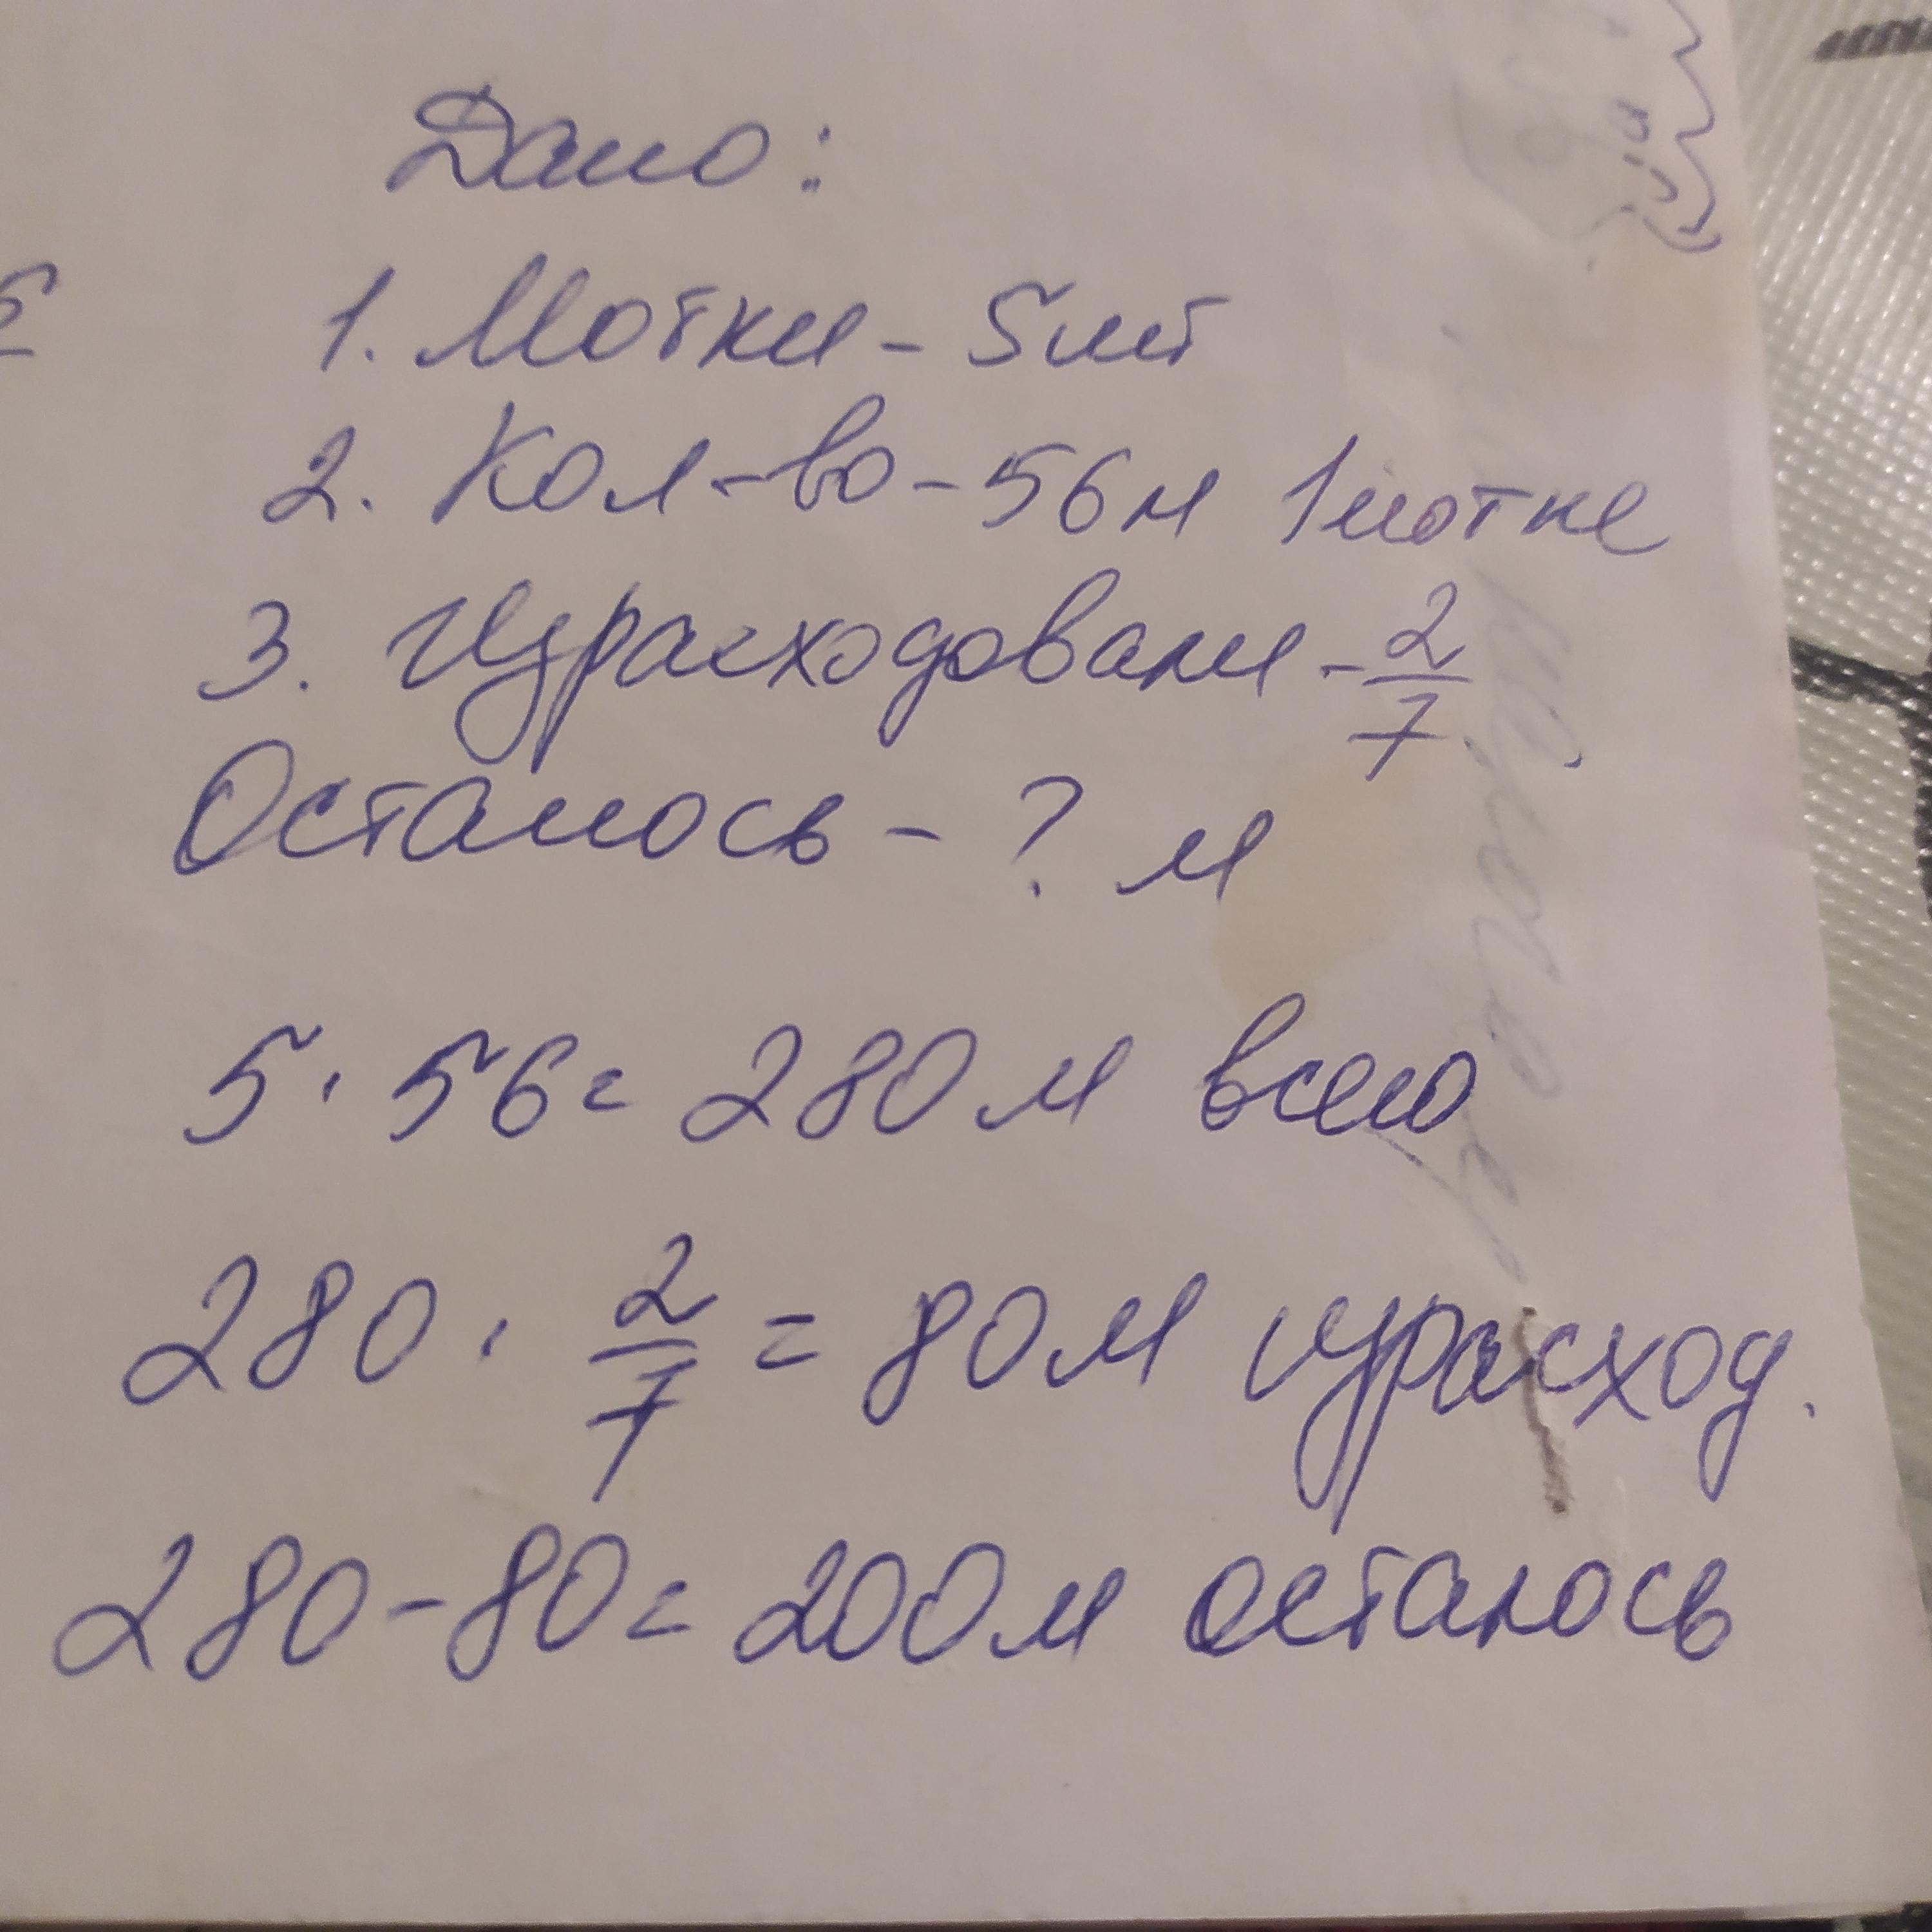 Дано:
1. Мотки - 5шт
2. Кол-во - 56м 1мотке
3. Израсходовали - 2/7
Осталось - ? м
5 · 56 = 280м всего
280 · 2/7 = 80м израсход.
280 - 80 = 200м осталось